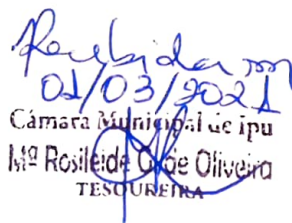 Recebida em
01/03/2021
Câmara Municipal de Ipu
Mª Rosileide de Oliveira
TESOUREIRA